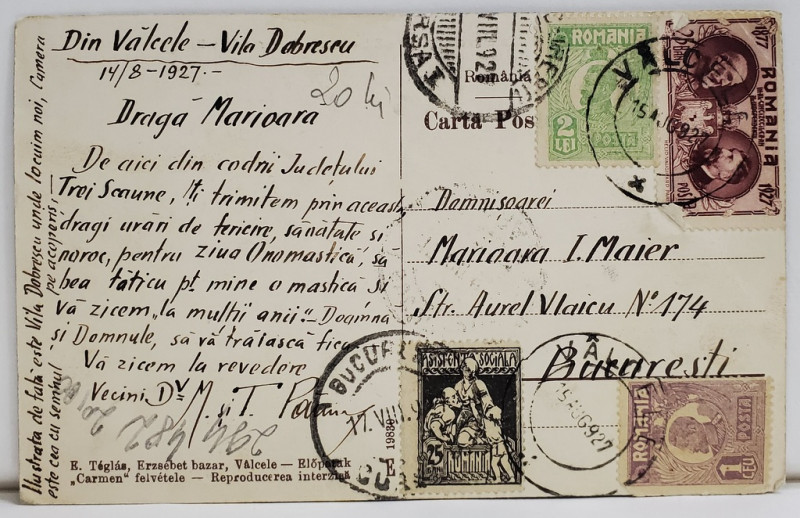 Din Vâlcele – Vila Dobrescu
14/8-1927.-
20 lei
Dragă Marioara
De aici din codrii Județului
Trei Scaune, Iți trimitem prin aceasta
dragi urări de fericire, sănătate si
noroc, pentru ziua Onomastică, să
bea tăticu pt. mine o mastică si
Vă zicem „la multi ani". Doamna
si Domnule, să vă trăiască fica
Vă zicem la revedere
Vecini
M. si T.
Ilustrata de fată este Vila Dobrescu unde locuim noi, Camera
este cea cu semnul pe acoperis
294482
E. Téglás, Erzsébet bazar, Vâlcele — Előpatak
„Carmen" felvétele — Reproducerea interzisă
19880
România
Carta Pos
ROMANIA
2
LEI
POSTA
1877
ROMANIA
1927
POSTA
VÂLCELE
15 AUG 927
Domnisoarei
Marioara I. Maier
Str. Aurel Vlaicu Nº 174
Bucuresti
BUCUREST
17.VIII.9
ASISTENTA SOCIALA
25
ROMANIA
VÂLCELE
15 AUG 927
ROMANIA
POSTA
1
LEU